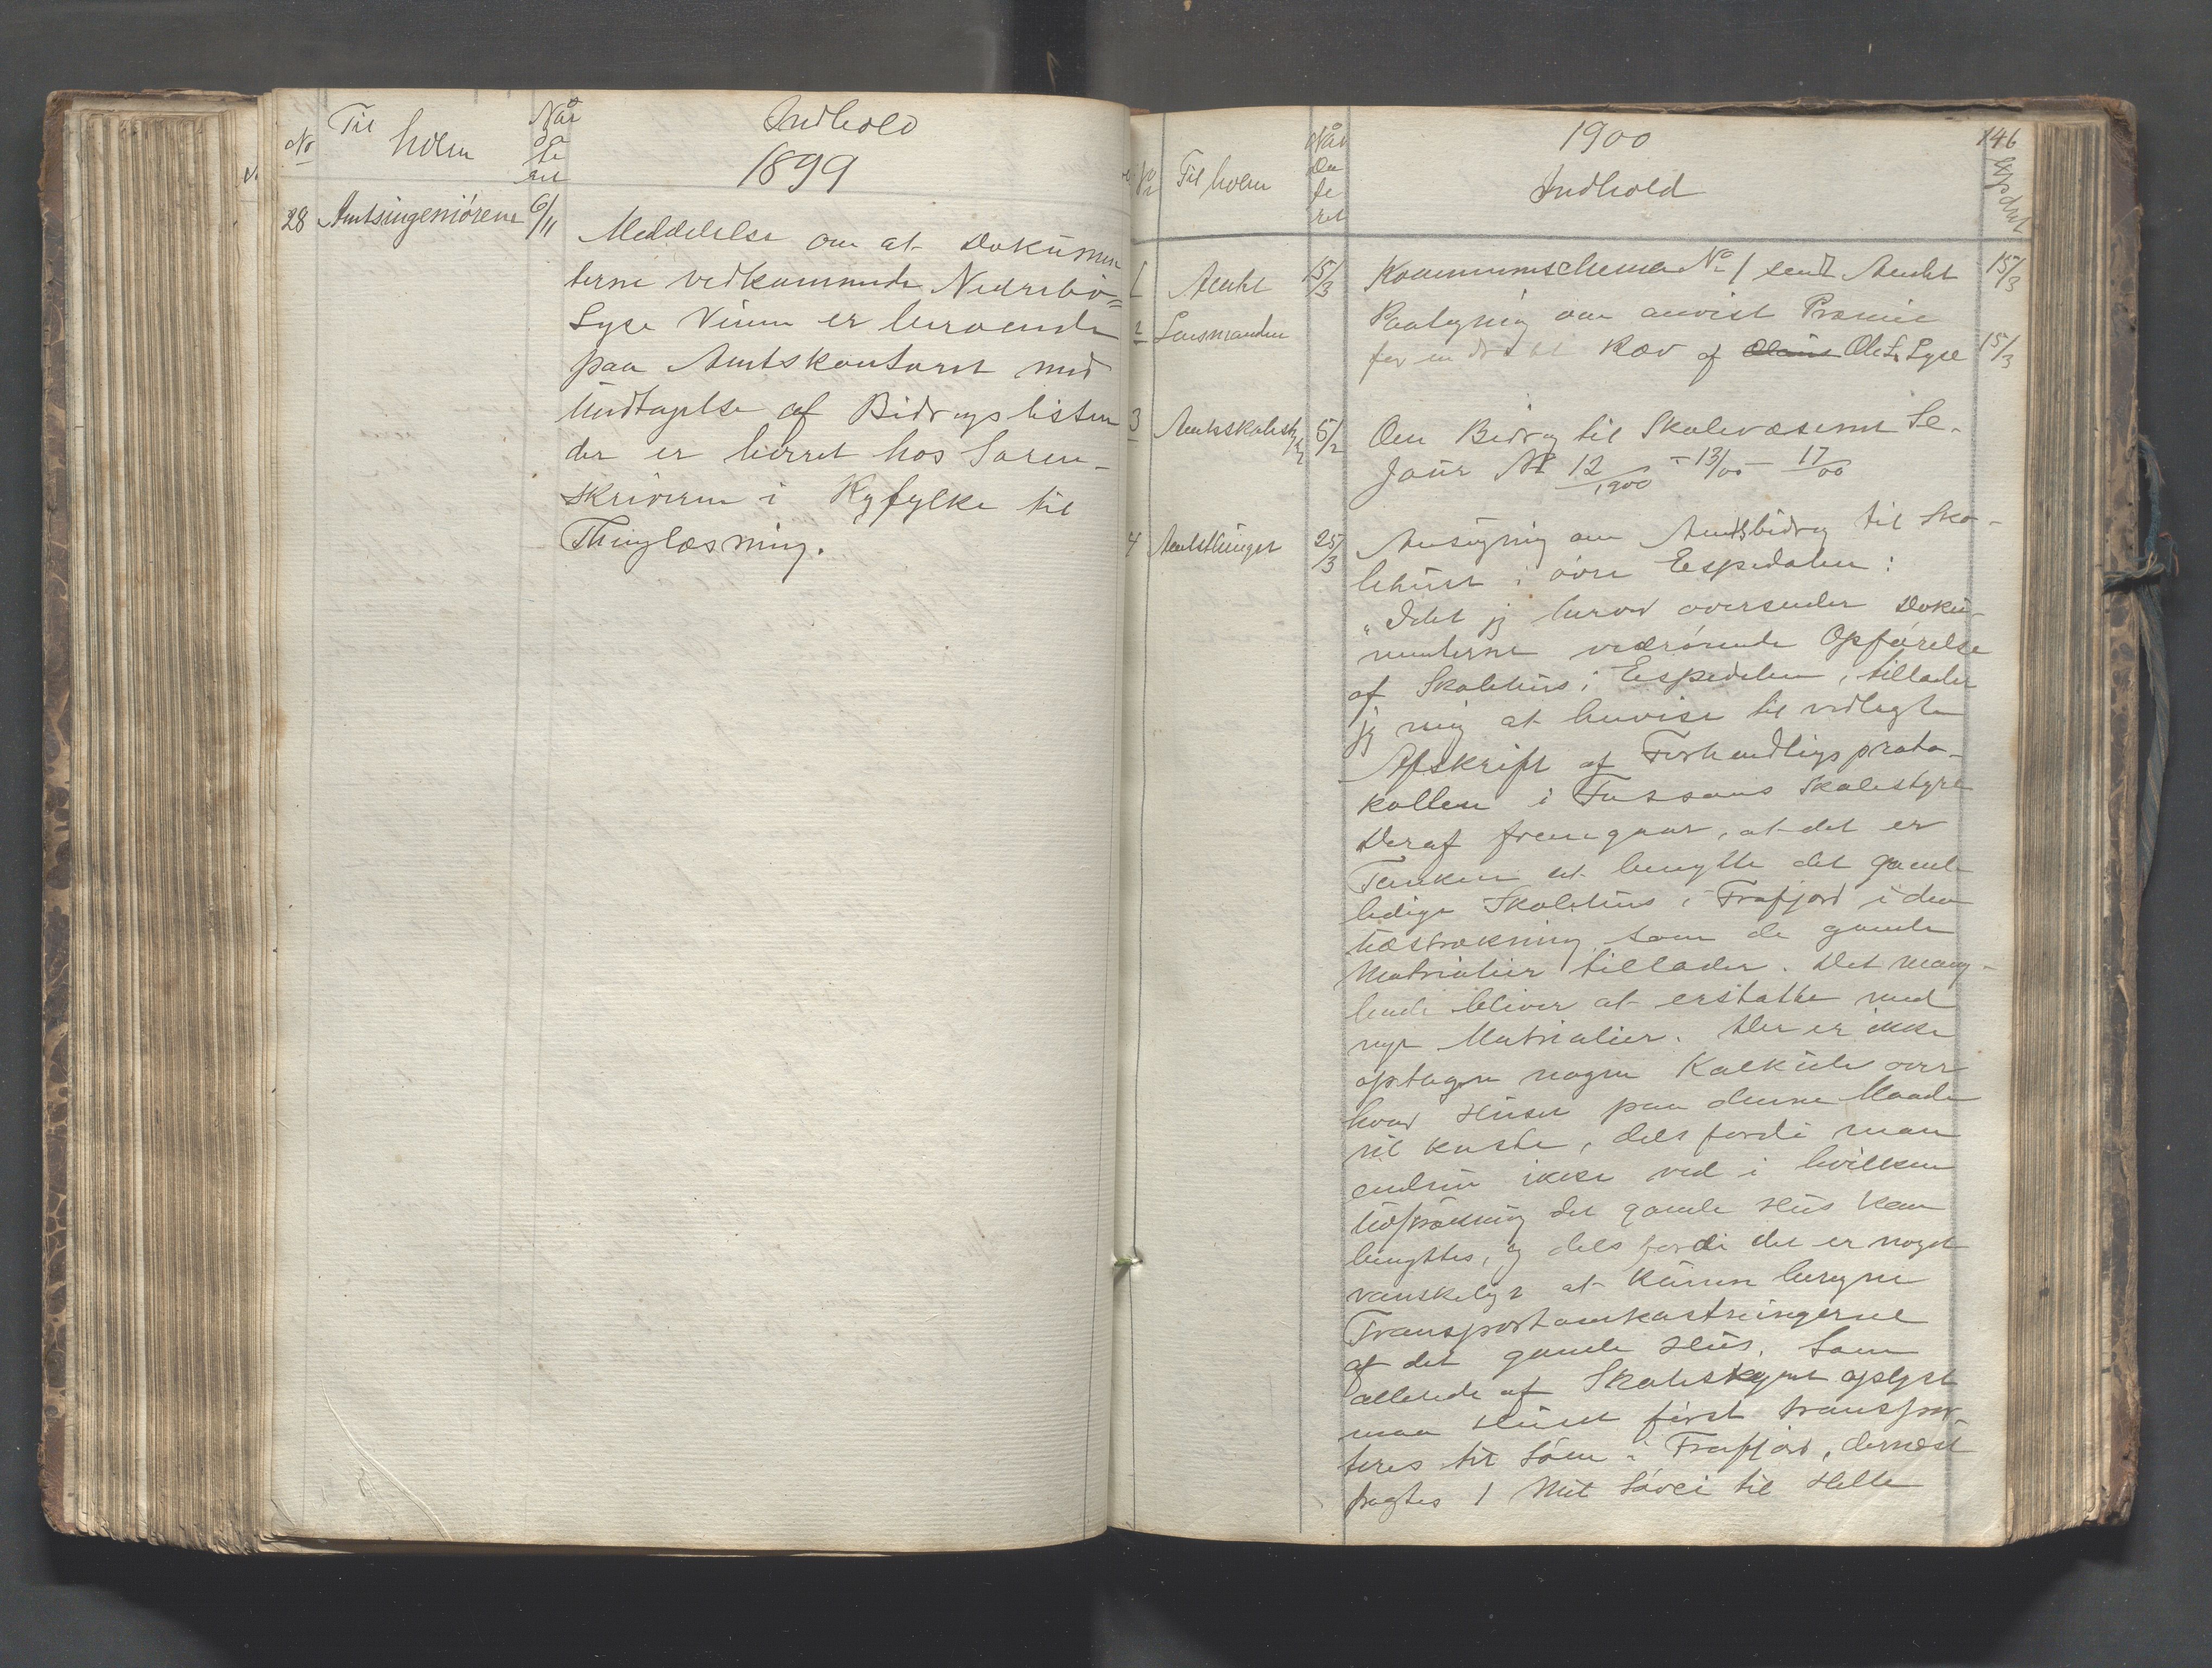 No
Til
hvem
Når
da
te
ret
Indhold
1899
28 Amtsingeniørene 6/11
Meddelelse om at Dokumen
terne vedkommende Nedrebø=
Lyse Veien er beroende
paa Amtskontoret med
Undtagelse af Bidragslisten
der er beroet hos Soren-
skriveren i Ryfylke til
Thinglæsning.
146
No
Til hvem
Når
Da
te
ret
1900
Indhold
Exp dat
1 Amtet 15/3 Kommuneschema No 1 sendt Amtet 15/3
2 Lensmanden Paategning om anvist Præmie
for en dræbt Ræv af Ole L. Lyse 15/3
3 Amtsskolest 5/2 Om Bidrag til Skolevæsenet Se
Jour No 12/1900 - 13/00 - 17/00
4 Amtsthinget 25/3 Ansøgning om Amtsbidrag til Sko-
lehuset i øvre Espedalen:
"Idet jeg herved oversender Doku-
menterne vedrørende Opførelse
af Skolehus i Espedalen, tillader
jeg mig at henvise til vedlagte
Afskrift af Forhandligsproto-
kollen i Fossans Skolestyre
Deraf fremgaar, at det er
Tanken at benytte det gamle
ledige Skolehus i Frafjord i den
Udstrækning som de gamle
Matrialier tillader. Det mang-
lende bliver at erstatte med
nye Matrialier. Der er ikke
optagen nogen Kalkule over
hvad Huset paa denne Maade
vil koste, dels fordi man
endnu ikke ved i hvilken
Udstrækning det gamle Hus kan
benyttes, og dels fordi det er noget
vanskeligt at kunne beregne
Transportomkostningerne
af det gamle Hus. Som
allerede af Skolestyret oplyst
maa Huset først transpor-
teres til Søen i Frafjord, dernæst
fragtes 1 Mil Søvei til Helle